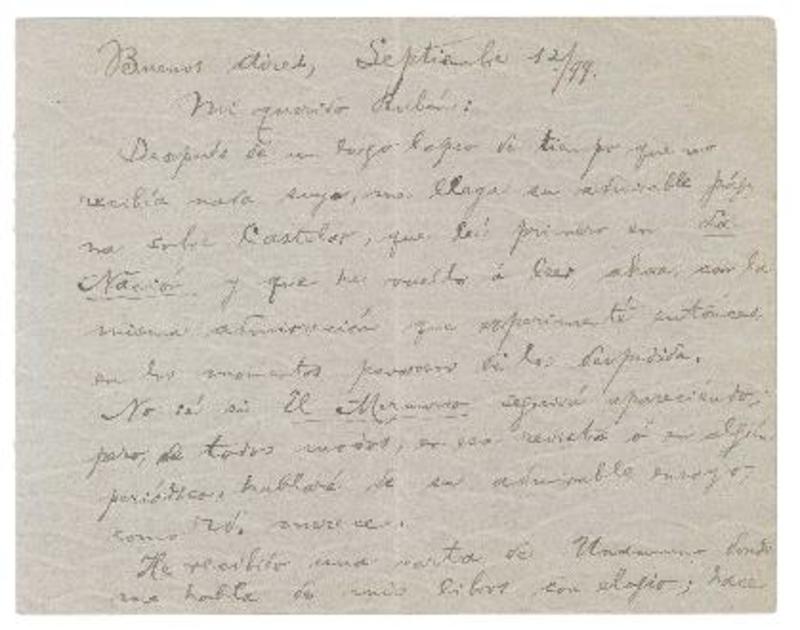 Buenos Aires, Septiembre 12/99.
Mi querido Rubén:
Después de un largo lapso de tiempo que no
recibía nada suyo, me llega su admirable pági-
na sobre Castelar, que leí primero en La
Nación y que he vuelto á leer ahora con la
misma admiración que experimenté entónces
en los momentos de la despedida.
No sé si El Mercurio seguirá apareciendo;
pero, de todos modos, en esa revista ó en algún
periódico, hablaré de su admirable ensayo,
como Vd. merece.
He recibido una carta de Unamuno donde
me habla de mis libros con elogio; hace